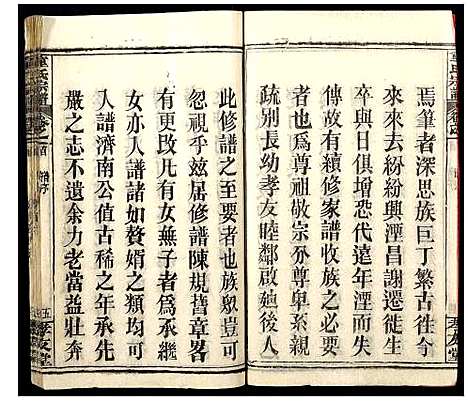 焉筆者深思族巨丁繁古徃今
來來去紛紛興湮昌謝遷徙生
卒與日俱增恐代遠年湮而失
傳故有續修家譜收族之必要
者也為尊祖敬宗分尊卑系親
疏別長幼孝友睦鄰啟廸後人
此修譜之至要者也族眾豈可
忽視乎玆居修譜陳規舊章畧
有更改凡有女無子者為承繼
女亦人譜諸如贅婿之類均可
人譜濟南公值古稀之年承先
嚴之志不遺余力老當益壯奔
氏宗譜
孝友堂